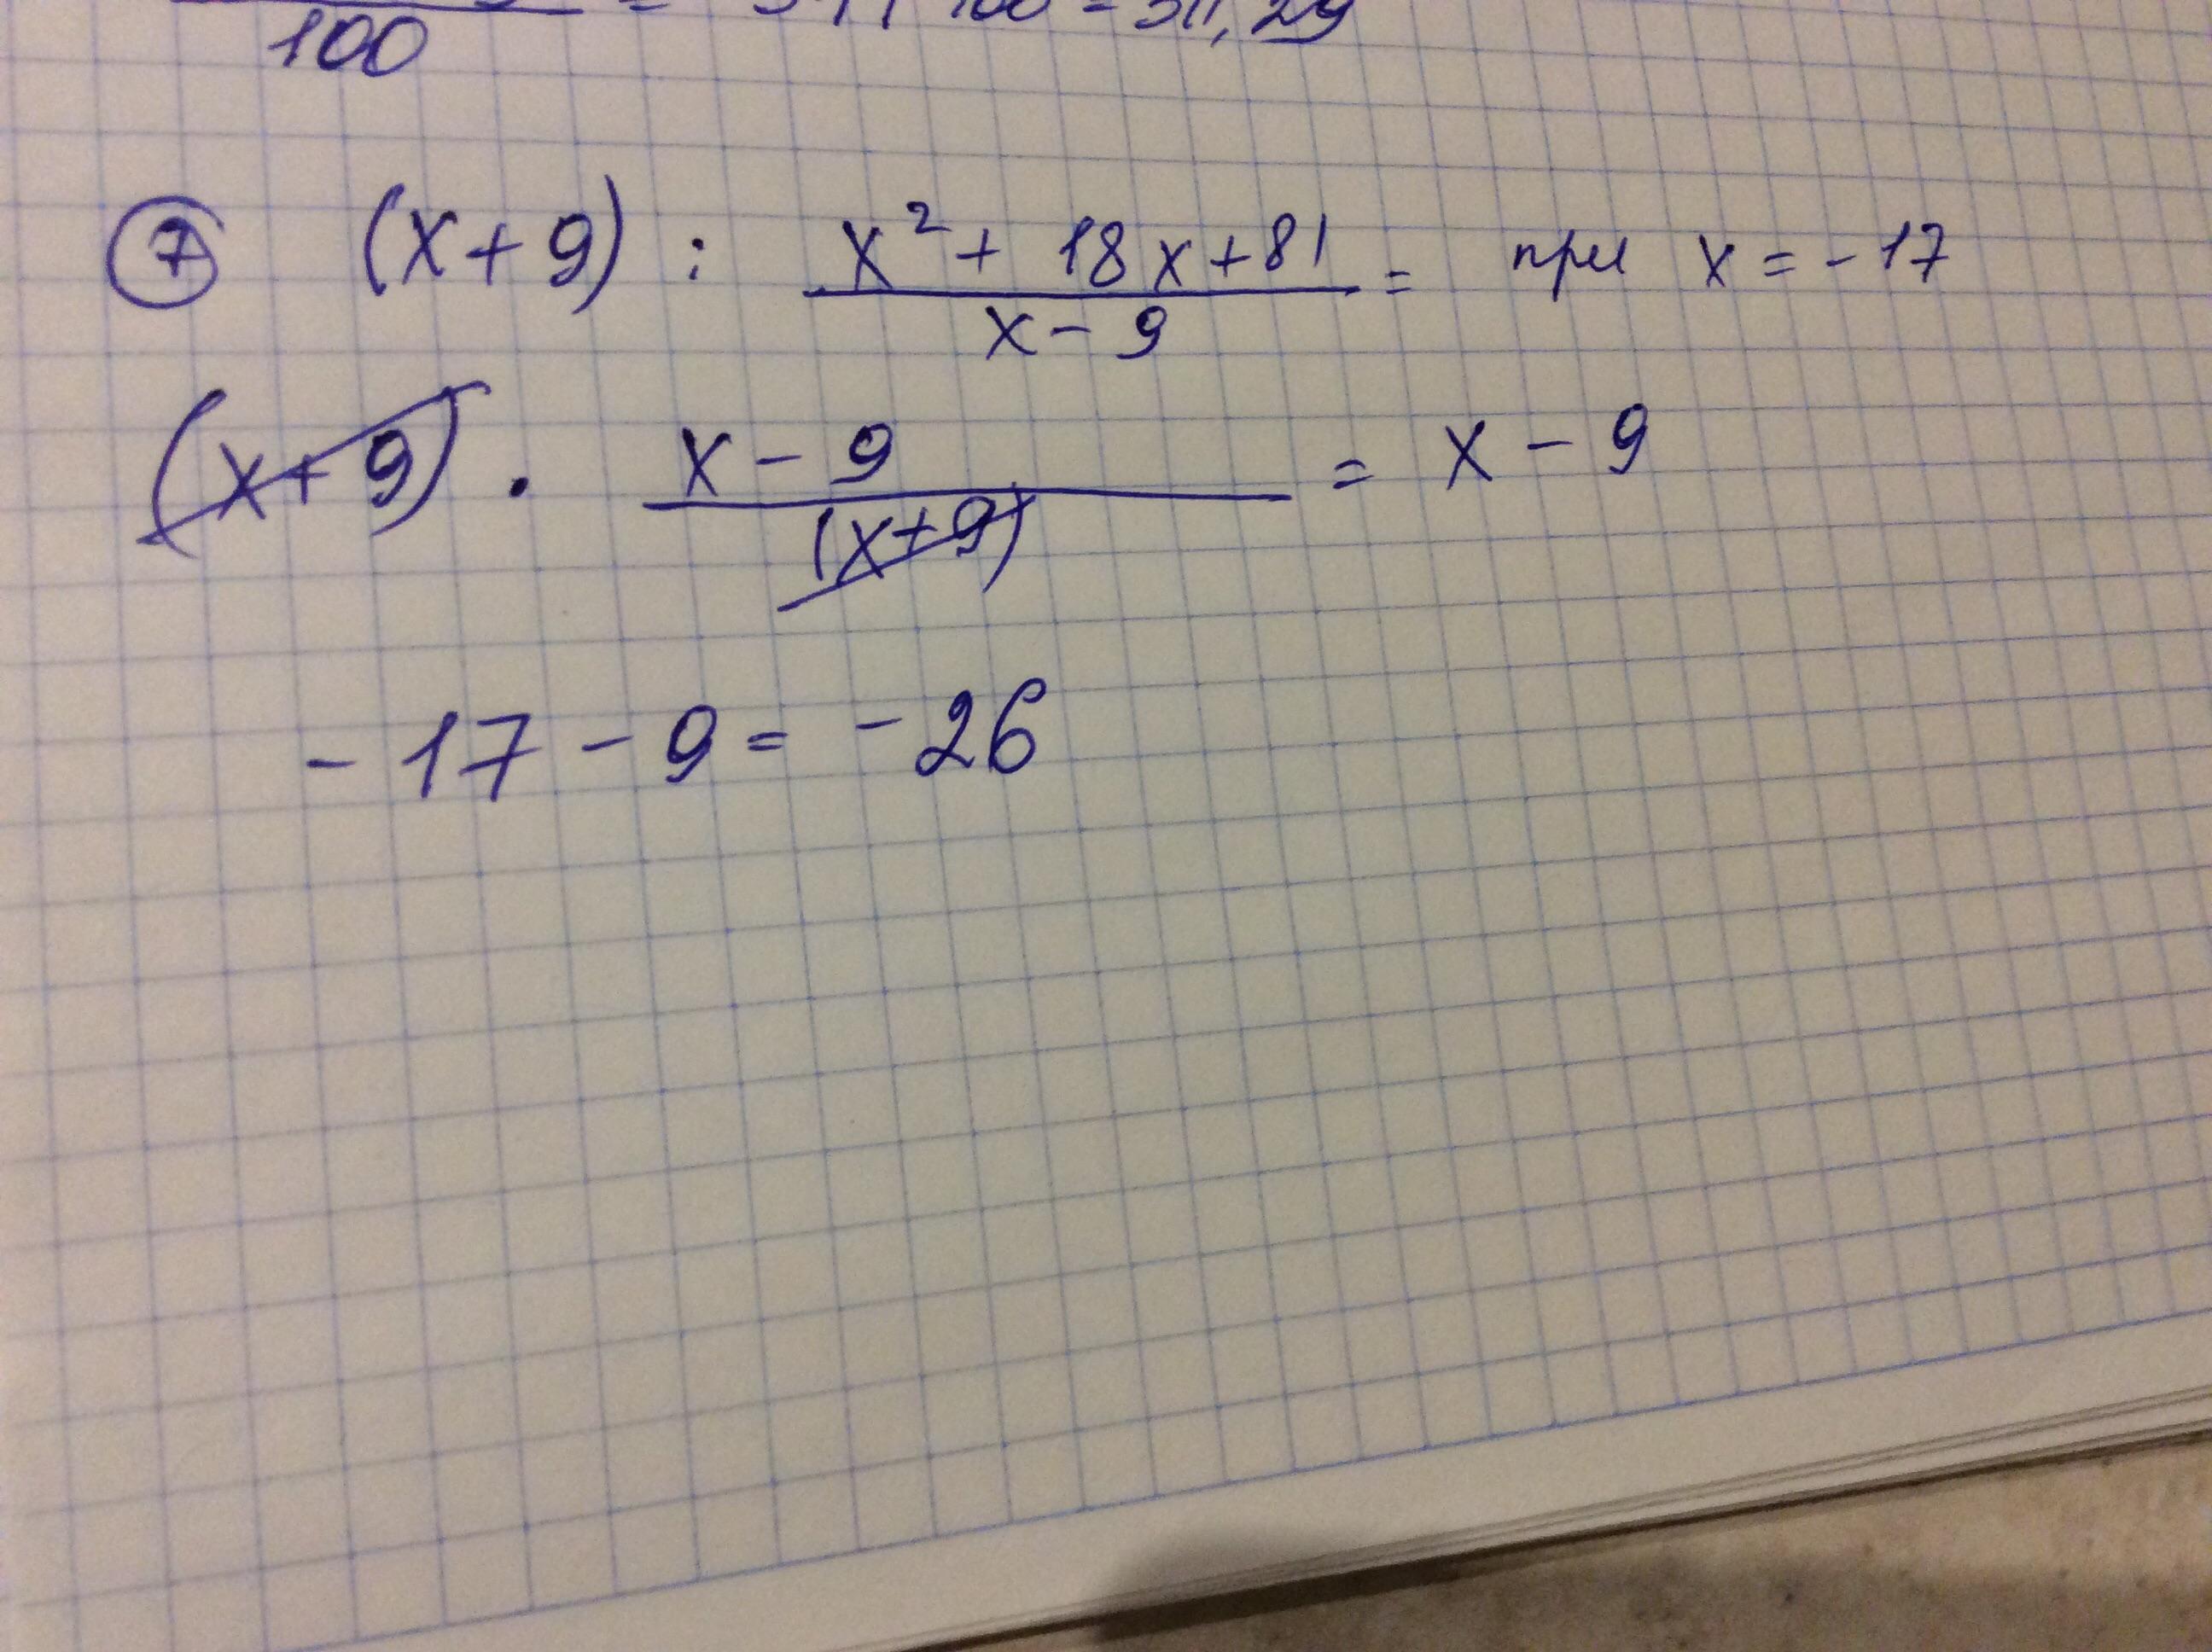 100 = 100 = 511,29
7 (x+9) : x²+ 18x+81 / x-9 = при x = -17
(x+9) · x-9 / (x+9) = x-9
-17-9 = -26